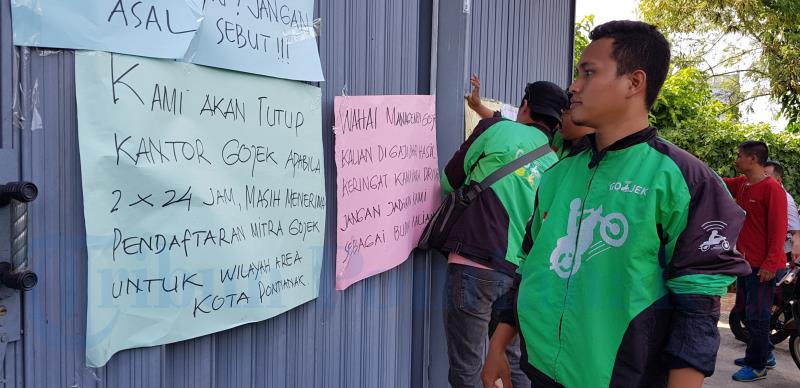 ASAL
JANGAN
SEBUT!!!
KAMI AKAN TUTUP
KANTOR GOJEK APABILA
2 X 24 JAM, MASIH MENERIMA
PENDAFTARAN MITRA GOJEK
UNTUK WILAYAH AREA
KOTA PONTIANAK.
WAHAI MANAGEMEN
KALIAN DI GAJI DARI HASIL
KERINGAT KAMI PARA DRIVER
JANGAN JADIKAN KAMI
SEBAGAI BUDAK KALIAN
GOJEK
Tribun Pontianak